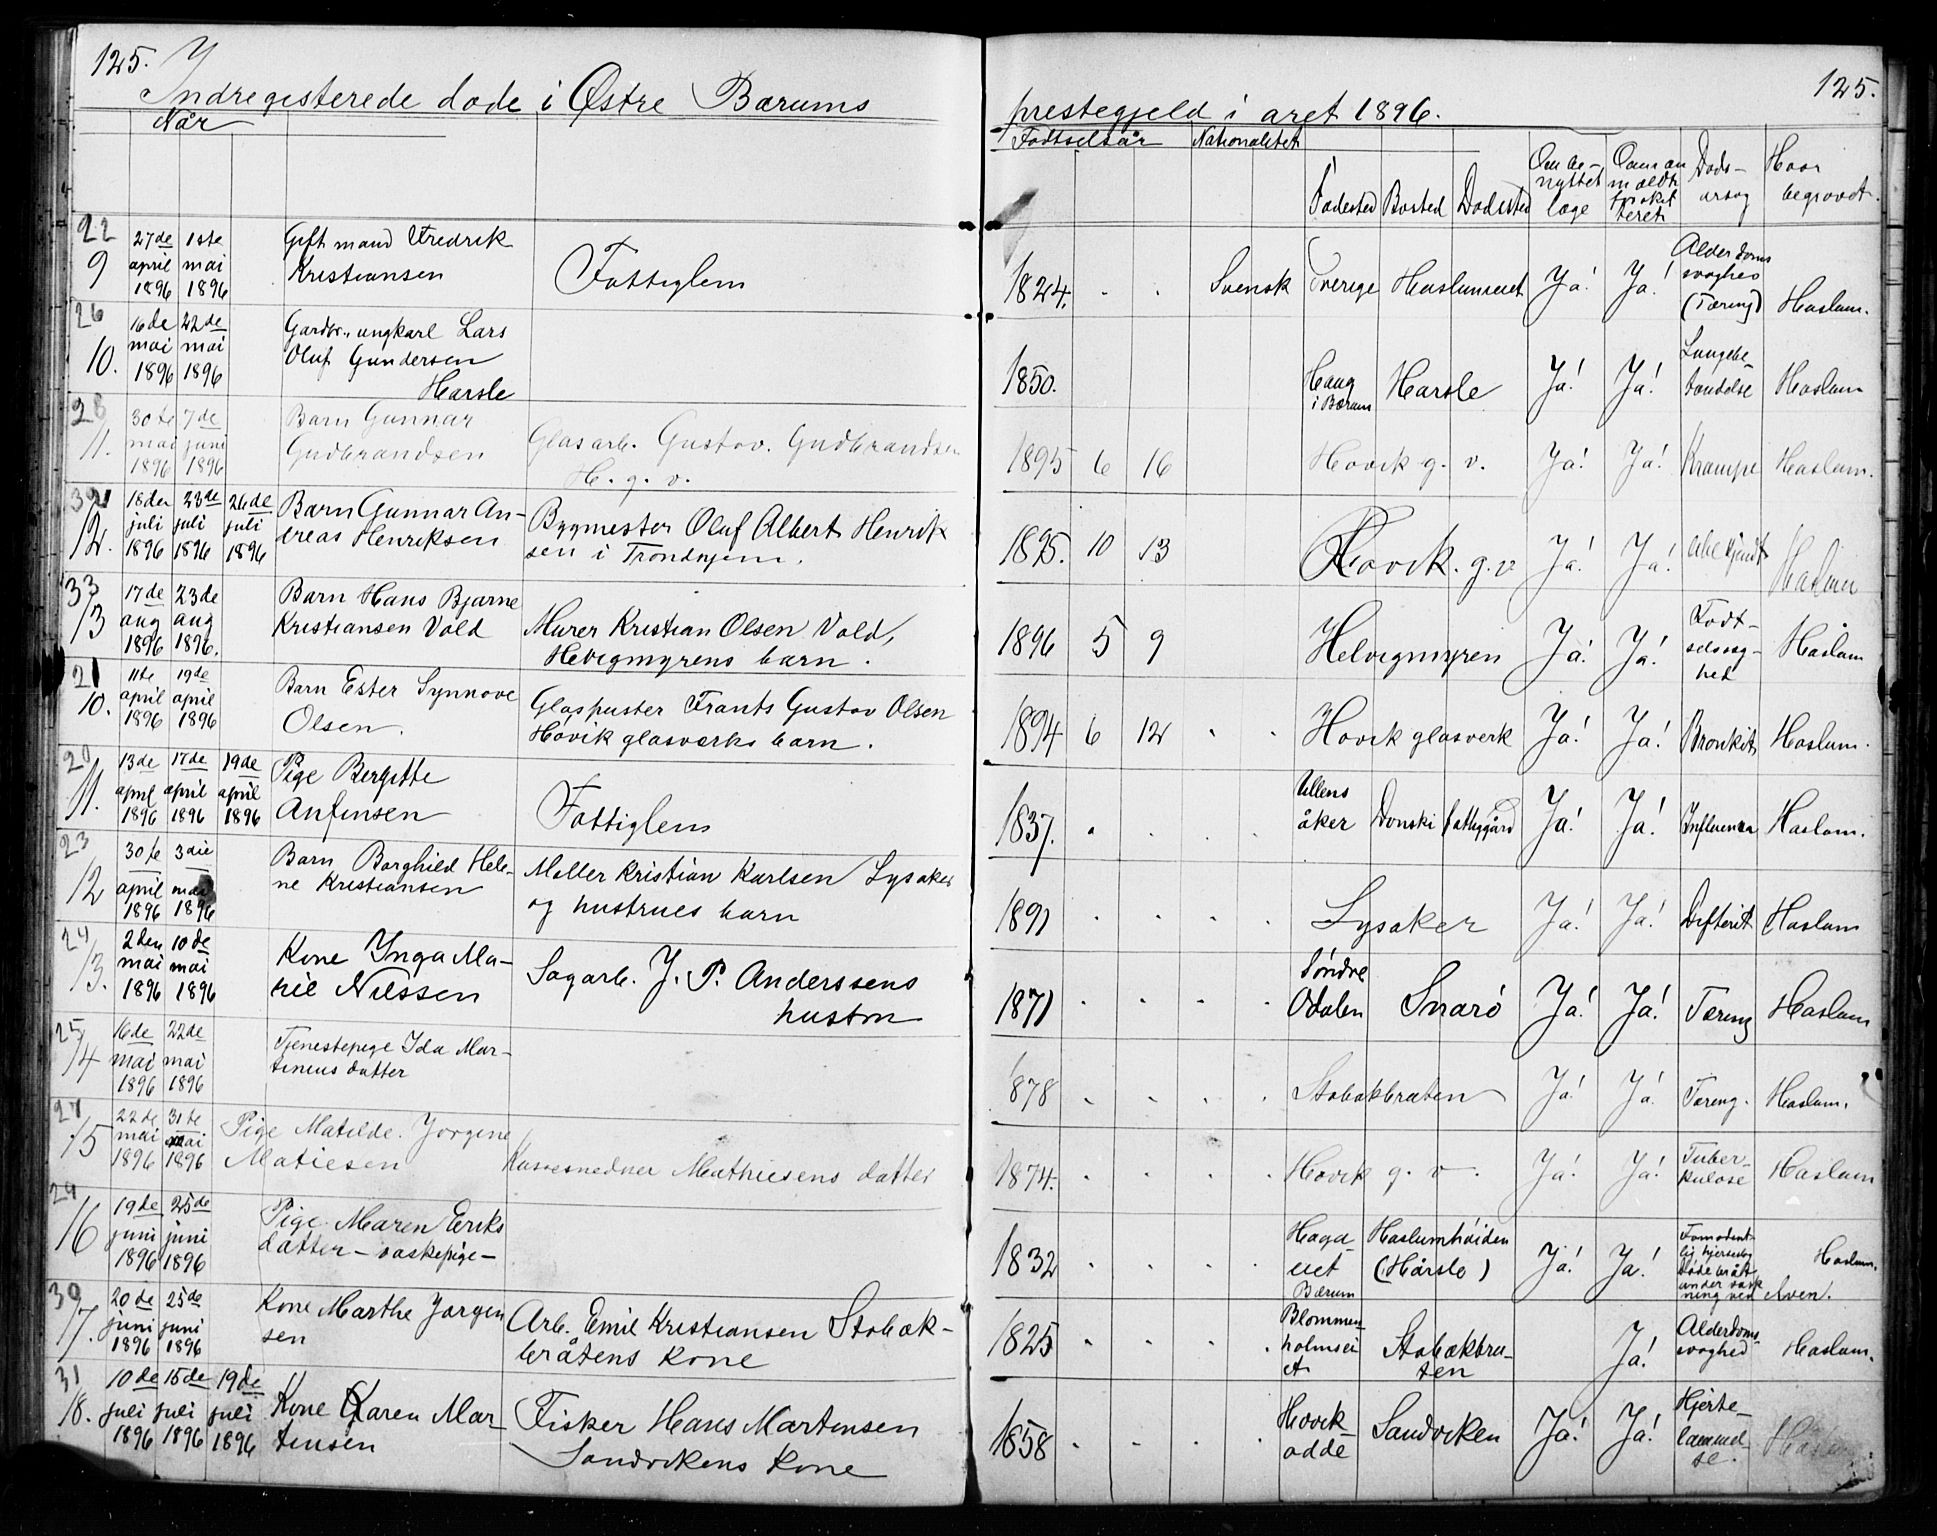 125.
Indregisterede døde i Østre Bærums
prestegjeld i året 1896.
125.
Når
Fødselsår Nationalitet
Fødested Bosted Dødsted
Om be-
nyttet
læge
Døds-
årsag
Hvor
begravet.
22
9
27de april 1896
1ste mai 1896
Gift mand Fredrik
Kristiansen
Fattiglem
1824. Svensk Sverige Ja! Ja!
Alderdoms
svaghed
(Tæring)
Haslum.
26
10.
16de mai 1896
22de mai 1896
Gardbr., ungkarl Lars
Oluf Gundersen
Harsle
1850.
Haug
i Bærum
Harsle Ja! Ja!
Lungebe-
tændelse
Haslum
28
11.
30te mai 1896
7de juni 1896
Barn Gunnar
Gudbrandsen
Glasarb. Gustav. Gudbrandsen
H. g. v.
1895 6 16 Høvik g. v. Ja! Ja! Krampe Haslum.
32
12.
18de juli 1896
23de juli 1896
26de juli 1896
Barn Gunnar An-
dreas Henriksen
Bygmester Oluf Albert Henrik
sen i Trondhjem.
1895. 10 13 Høvik. g. v Ja! Ja! Haslum
33
13
17de aug 1896
23de aug 1896.
Barn Hans Bjarne
Kristiansen Vold
Murer Kristian Olsen Vold,
Helvigmyrens barn.
1896 5 9 Helvigmyren Ja! Ja!
Født-
selssvag-
het
Haslum
21
10.
11te april 1896
19de april 1896
Barn Ester Synnøve
Olsen.
Glaspuster Frants Gustav Olsen
Høvik glasværks barn.
1894 6 12 Høvik glasverk Ja! Ja! Bronkit Haslum.
20
11.
13de april 1896
17de april 1896
19de april 1896
Pige Bergitte
Anfinsen
Fattiglem
1837.
Ullens
åker
Dønski fattiggård Ja! Ja! Influensa Haslum.
23
12
30te april 1896
3die mai 1896
Barn Borghild Hele-
ne Kristiansen
Møller Kristian Karlsen Lysaker
og hustrues barn
1891 Lysaker Ja! Ja! Difterit Haslum
24
13.
2den mai 1896
10de mai 1896
Kone Inga Ma-
rie Nilssen
Sagarb. J. P. Anderssens
hustru
1871
Søndre
Odalen
Snarø Ja! Ja! Tæring Haslum
25
14
16de mai 1896
22de mai 1896
Tjenestepige Ida Mar-
tinius datter
1878 Stabækbråten Ja! Ja! Tæring. Haslum.
27
15
22de mai 1896
31te mai 1896
Pige Matilde. Jorgine
Matiesen
Mathiesens datter
1874. Høvik g. v. Ja! Ja!
Tuber-
kulose
Haslum
29
16
19de juni 1896
25de juni 1896
Pige Maren Eriks
datter - vaskepige -
1832
Bærum
Haslumhøiden
(Hårslo)
Ja! Ja!
under vask
ning ved elven.
Haslum.
30
17.
20de juni 1896
25de juni 1896
Kone Marthe Jørgen
sen
Arb. Emil Kristiansen Stabæk-
bråtens kone
1825
Blommen-
holmsei
et
Stabækbrå-
ten
Ja!
Alderdoms-
svaghed
Haslum.
31
18.
10de juli 1896
15de juli 1896
19de juli 1896
Kone Karen Mar-
tinsen
Fisker Hans Martinsen
Sandvikens kone
1858
Høvik-
odde
Sandviken Ja! Ja!
Hjerte-
lammel-
se.
Haslum